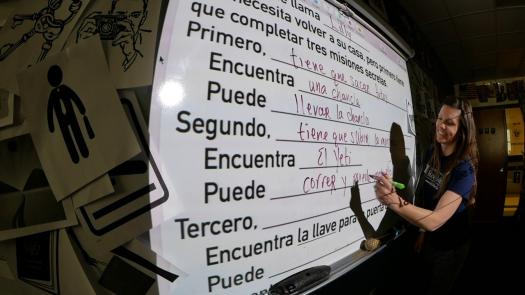 se llama
necesita volver a su casa, pero primero tiene
que completar tres misiones secretas.
Primero, tiene que sacar
Encuentra una chancla
Puede llevar la chancla
Segundo, tiene que
Encuentra El Yeti
Puede correr y
Tercero,
Encuentra la llave para puerta
Puede